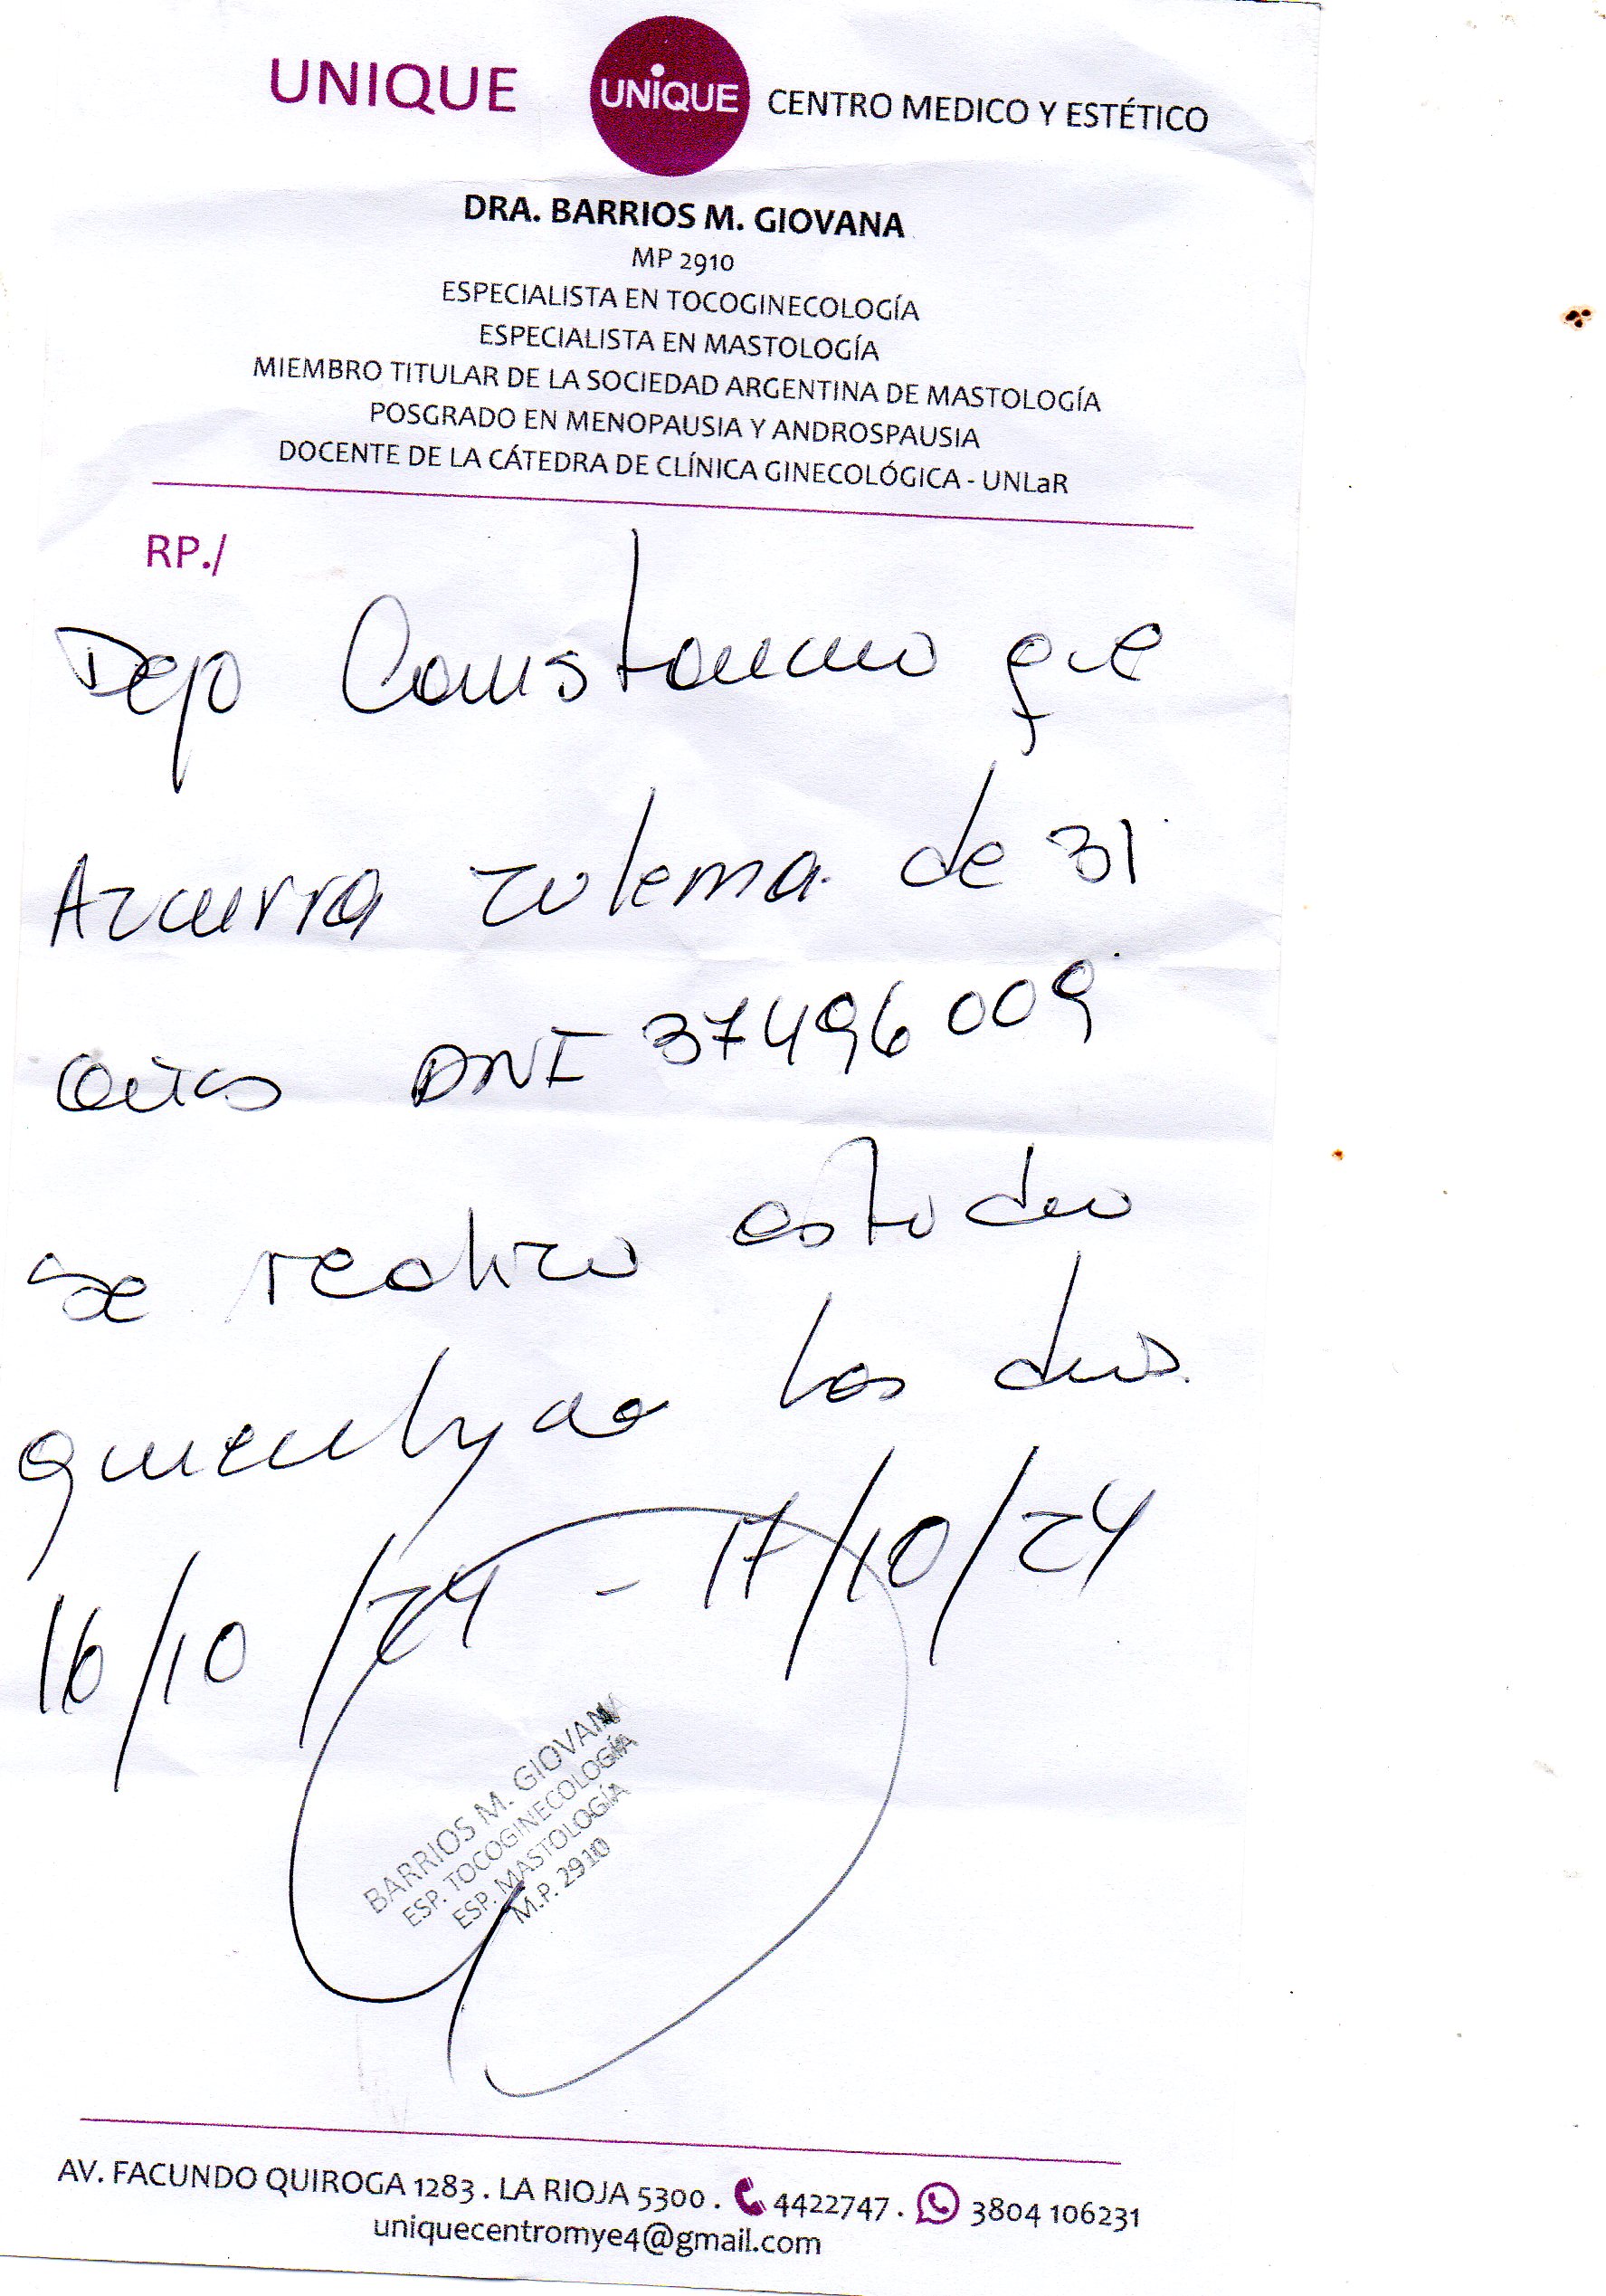 UNIQUE UNIQUE CENTRO MEDICO Y ESTÉTICO
DRA. BARRIOS M. GIOVANA
MP 2910
ESPECIALISTA EN TOCOGINECOLOGÍA
ESPECIALISTA EN MASTOLOGÍA
MIEMBRO TITULAR DE LA SOCIEDAD ARGENTINA DE MASTOLOGÍA
POSGRADO EN MENOPAUSIA Y ANDROSPAUSIA
DOCENTE DE LA CÁTEDRA DE CLÍNICA GINECOLÓGICA - UNLaR
RP./
Dejo Constancia que
Azcurra Zulema de 31
años DNI 37496009
se realizo estudio
los dias
16/10/24 - 17/10/24
BARRIOS M. GIOVANA
ESP. TOCOGINECOLOGÍA
ESP. MASTOLOGÍA
M.P. 2910
AV. FACUNDO QUIROGA 1283 . LA RIOJA 5300 . 4422747 . 3804 106231
uniquecentromye4@gmail.com